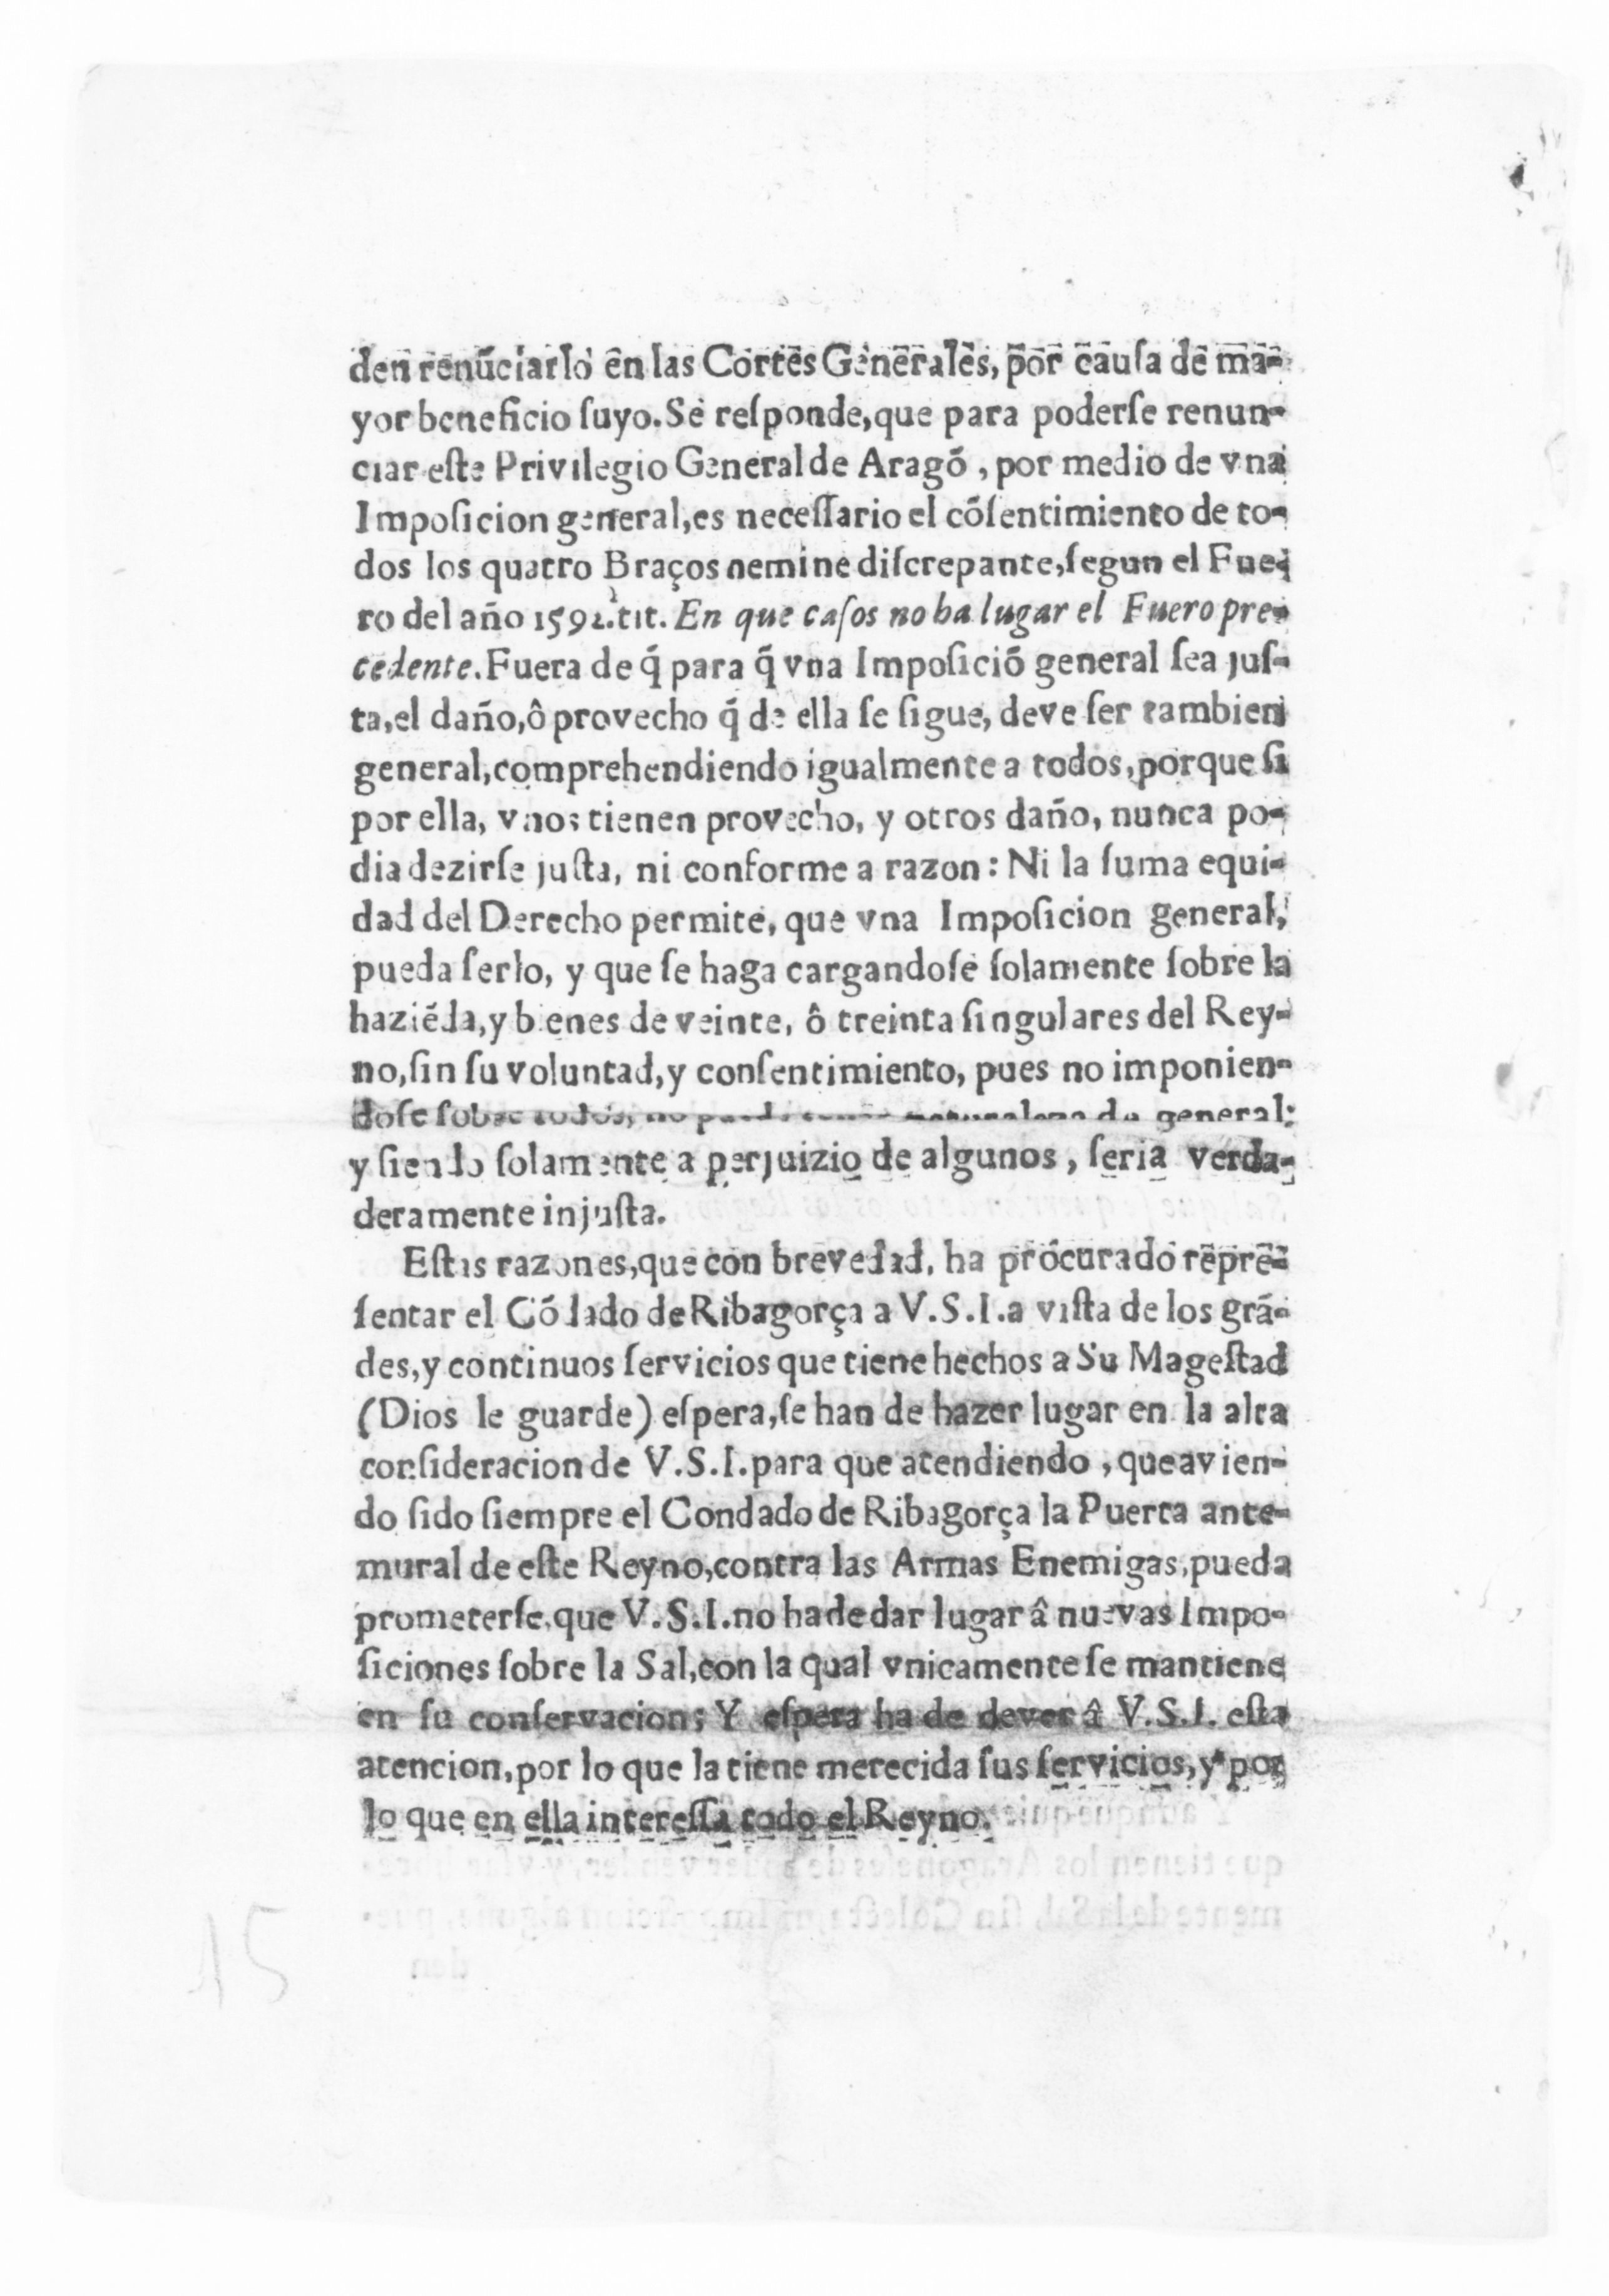 den renūciarlo en las Cortes Generales, por causa de ma-
yor beneficio ſuyo. Se reſponde, que para poderſe renun-
ciar eſte Privilegio General de Aragõ, por medio de vna
Impoſicion general, es neceſſario el cõſentimiento de to-
dos los quatro Braços nemine diſcrepante, ſegun el Fue-
ro del año 1592. tit. En que caſos no ha lugar el Fuero pre-
cedente. Fuera de q̃ para q̃ vna Impoſiciõ general ſea juſ-
ta, el daño, ô provecho q̃ de ella ſe ſigue, deve ſer tambien
general, comprehendiendo igualmente a todos, porque ſi
por ella, vnos tienen provecho, y otros daño, nunca po-
dia dezirſe juſta, ni conforme a razon: Ni la ſuma equi-
dad del Derecho permite, que vna Impoſicion general,
pueda ſerlo, y que ſe haga cargandoſe ſolamente ſobre la
haziẽda, y bienes de veinte, ô treinta ſingulares del Rey-
no, ſin ſu voluntad, y conſentimiento, pues no imponien-
doſe ſobre todos, no de general;
y ſiendo ſolamente a perjuizio de algunos, ſeria verda-
deramente injuſta.
Eſtas razones, que con brevedad, ha procurado repre-
ſentar el Cõdado de Ribagorça a V.S.I. a viſta de los grã-
des, y continuos ſervicios que tiene hechos a Su Mageſtad
(Dios le guarde) eſpera, ſe han de hazer lugar en la alta
conſideracion de V.S.I. para que atendiendo, que avien-
do ſido ſiempre el Condado de Ribagorça la Puerta ante-
mural de eſte Reyno, contra las Armas Enemigas, pueda
prometerſe, que V.S.I. no ha de dar lugar â nuevas Impo-
ſiciones ſobre la Sal, con la qual vnicamente ſe mantiene
en ſu conſervacion; Y eſpera ha de dever â V.S.I. eſta
atencion, por lo que la tiene merecida ſus ſervicios, y por
lo que en ella intereſſa todo el Reyno.
15